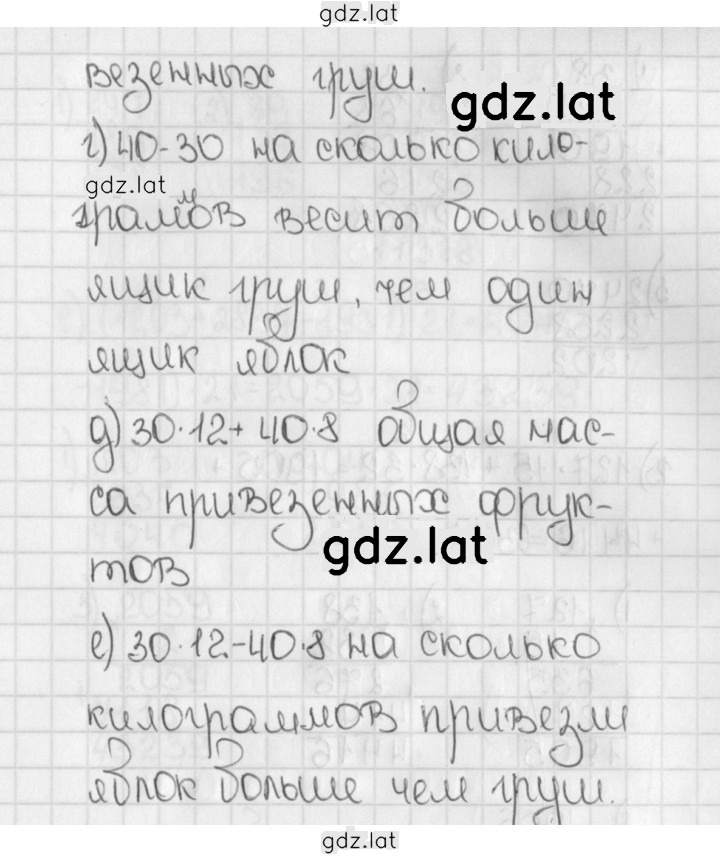 gdz.lat
везенных груш.
gdz.lat
г) 40-30 на сколько кило-
gdz.lat
граммов весит больше
ящик груш, чем один
ящик яблок
д) 30·12+40·8 общая мас-
са привезенных фрук-
gdz.lat
тов
е) 30·12-40·8 на сколько
килограммов привезли
яблок больше чем груш.
gdz.lat